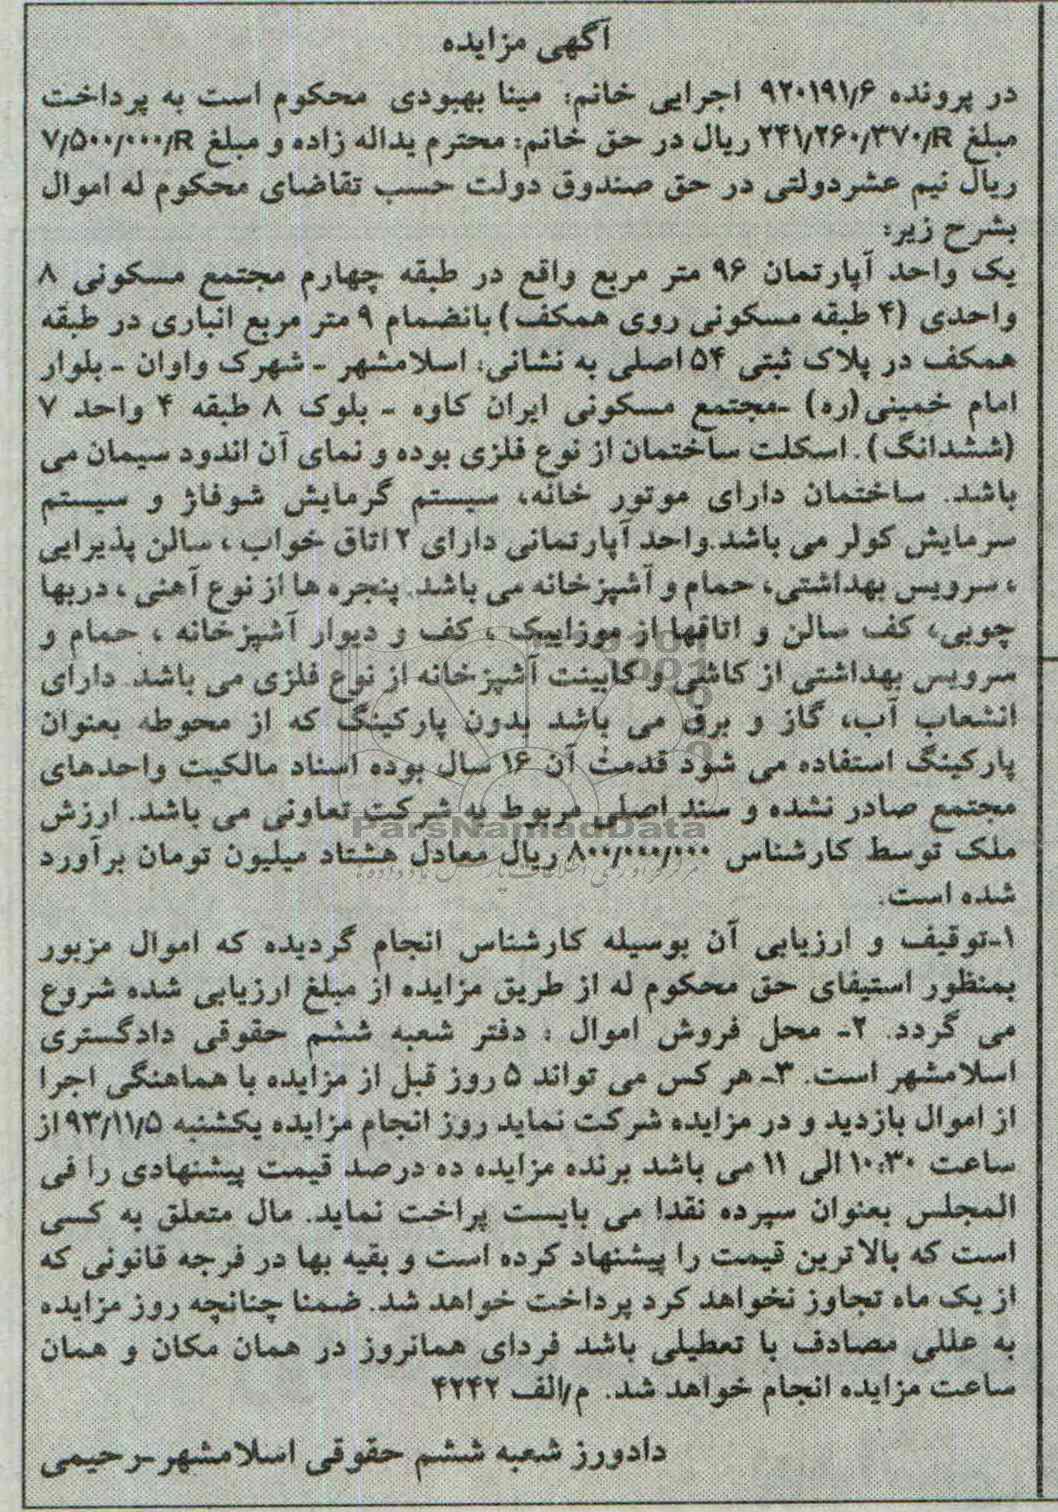 آگهی مزایده
در پرونده ۹۲۰۱۹۱/۶ اجرایی خانم: مینا بهبودی محکوم است به پرداخت
مبلغ ۲۴۱/۲۶۰/۳۷۰/R ریال در حق خانم: محترم یداله زاده و مبلغ ۷/۵۰۰/۰۰۰/R
ریال نیم عشردولتی در حق صندوق دولت حسب تقاضای محکوم له اموال
بشرح زیر:
یک واحد آپارتمان ۹۶ متر مربع واقع در طبقه چهارم مجتمع مسکونی ۸
واحدی (۴ طبقه مسکونی روی همکف) بانضمام ۹ متر مربع انباری در طبقه
همکف در پلاک ثبتی ۵۴ اصلی به نشانی: اسلامشهر ـ شهرک واوان ـ بلوار
امام خمینی(ره) ـمجتمع مسکونی ایران کاوه ـ بلوک ۸ طبقه ۴ واحد ۷
(ششدانگ). اسکلت ساختمان از نوع فلزی بوده و نمای آن اندود سیمان می
باشد. ساختمان دارای موتور خانه، سیستم گرمایش شوفاژ و سیستم
سرمایش کولر می باشد.واحد آپارتمانی دارای ۲ اتاق خواب ، سالن پذیرایی
، سرویس بهداشتی، حمام و آشپزخانه می باشد. پنجره ها از نوع آهنی ، دربها
چوبی، کف سالن و اتاقها از موزاییک ، کف و دیوار آشپزخانه ، حمام و
سرویس بهداشتی از کاشی و کابینت آشپزخانه از نوع فلزی می باشد. دارای
انشعاب آب، گاز و برق می باشد بدون پارکینگ که از محوطه بعنوان
پارکینگ استفاده می شود قدمت آن ۱۶ سال بوده اسناد مالکیت واحدهای
مجتمع صادر نشده و سند اصلی مربوط به شرکت تعاونی می باشد. ارزش
ParsNamadData
ملک توسط کارشناس ۸۰۰/۰۰۰/۰۰۰ ریال معادل هشتاد میلیون تومان برآورد
شده است.
۱-توقیف و ارزیابی آن بوسیله کارشناس انجام گردیده که اموال مزبور
بمنظور استیفای حق محکوم له از طریق مزایده از مبلغ ارزیابی شده شروع
می گردد. ۲ـ محل فروش اموال : دفتر شعبه ششم حقوقی دادگستری
اسلامشهر است. ۳ـ هر کس می تواند ۵ روز قبل از مزایده با هماهنگی اجرا
از اموال بازدید و در مزایده شرکت نماید روز انجام مزایده یکشنبه ۹۳/۱۱/۵ از
ساعت ۱۰:۳۰ الی ۱۱ می باشد برنده مزایده ده درصد قیمت پیشنهادی را فی
المجلس بعنوان سپرده نقدا می بایست پراخت نماید. مال متعلق به کسی
است که بالاترین قیمت را پیشنهاد کرده است و بقیه بها در فرجه قانونی که
از یک ماه تجاوز نخواهد کرد پرداخت خواهد شد. ضمنا چنانچه روز مزایده
به عللی مصادف با تعطیلی باشد فردای همانروز در همان مکان و همان
ساعت مزایده انجام خواهد شد. م/الف ۴۲۴۲
دادورز شعبه ششم حقوقی اسلامشهر-رحیمی